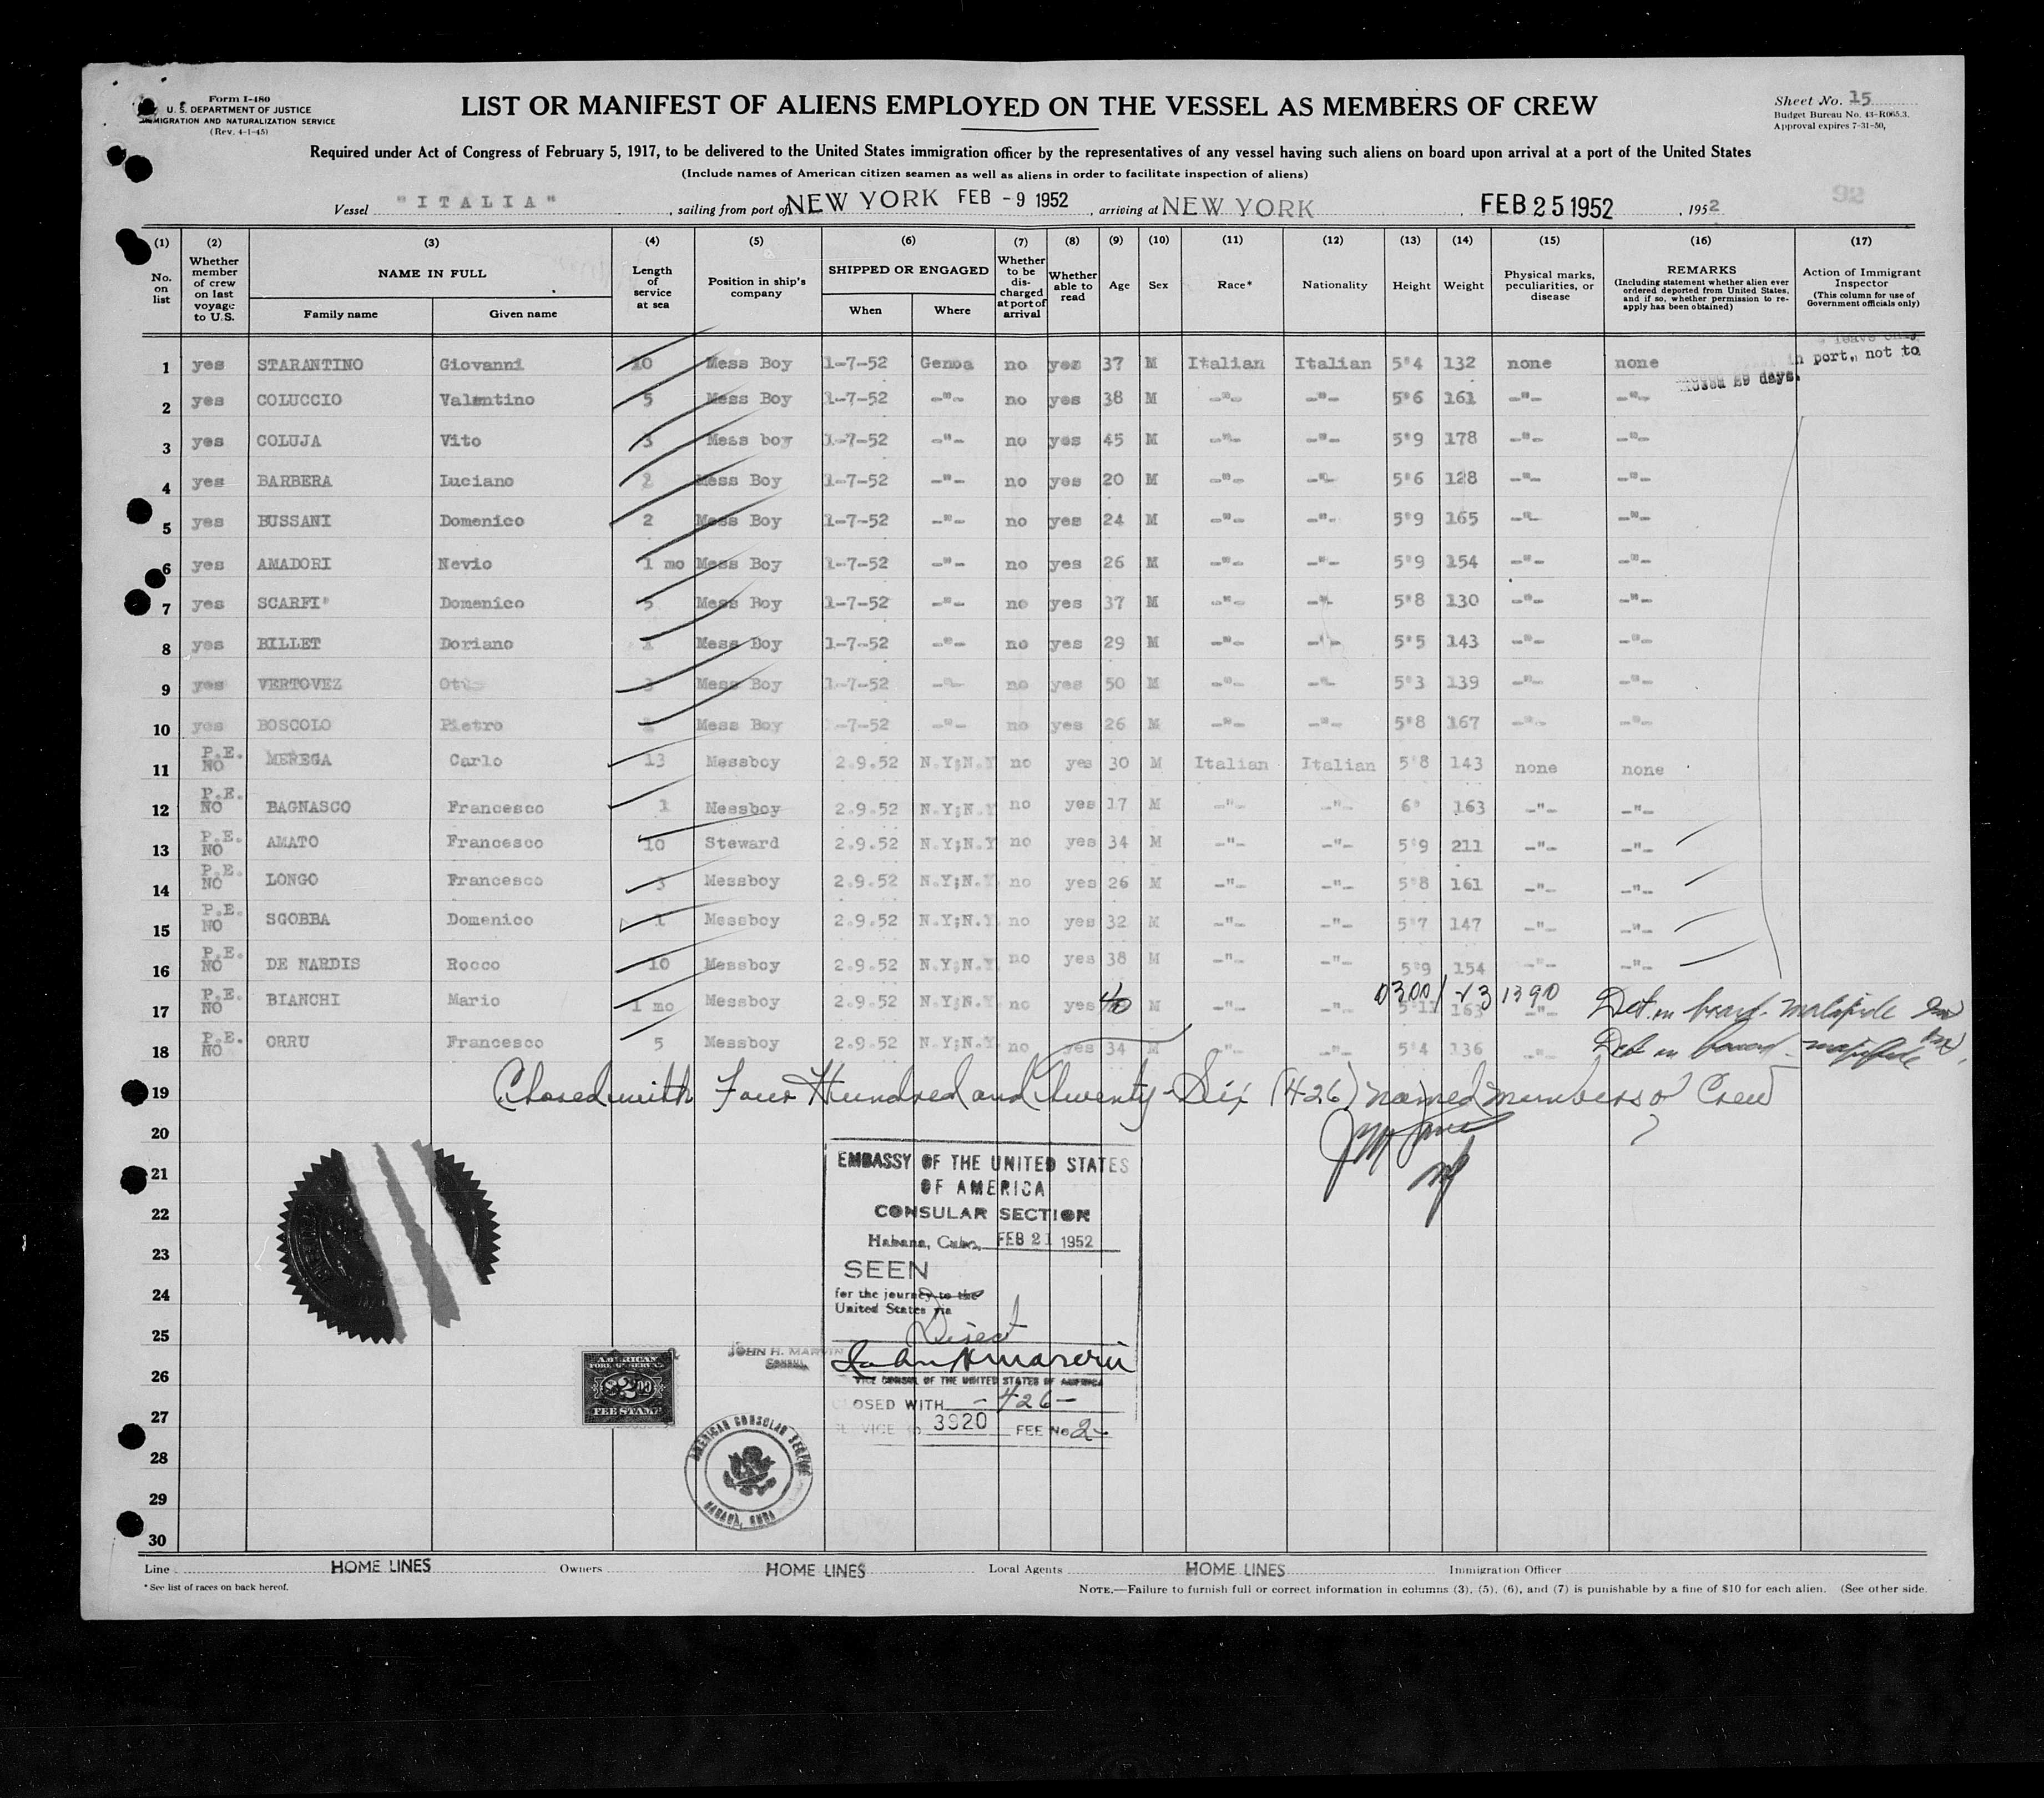 Form I-480
U. S. DEPARTMENT OF JUSTICE
IMMIGRATION AND NATURALIZATION SERVICE
(Rev. 4-1-45)
LIST OR MANIFEST OF ALIENS EMPLOYED ON THE VESSEL AS MEMBERS OF CREW
Sheet No. 15
Budget Bureau No. 43-R065.3.
Approval expires 7-31-50.
Required under Act of Congress of February 5, 1917, to be delivered to the United States immigration officer by the representatives of any vessel having such aliens on board upon arrival at a port of the United States
(Include names of American citizen seamen as well as aliens in order to facilitate inspection of aliens)
92
Vessel "ITALIA", sailing from port of NEW YORK FEB -9 1952, arriving at NEW YORK, FEB 25 1952, 1952
(1) (2) (3) (4) (5) (6) (7) (8) (9) (10) (11) (12) (13) (14) (15) (16) (17)
No. on list
Whether member of crew on last voyage to U.S.
NAME IN FULL
Family name Given name
Length of service at sea
Position in ship's company
SHIPPED OR ENGAGED
When Where
Whether to be discharged at port of arrival
Whether able to read
Age
Sex
Race*
Nationality
Height
Weight
Physical marks, peculiarities, or disease
REMARKS
(Including statement whether alien ever ordered deported from United States, and if so, whether permission to re-apply has been obtained)
Action of Immigrant Inspector
(This column for use of Government officials only)
leave only
in port, not to
29 days.
1 yes STARANTINO Giovanni 10 Mess Boy 1-7-52 Genoa no yes 37 M Italian Italian 5'4 132 none none
2 yes COLUCCIO Valentino 5 Mess Boy 1-7-52 -"- no yes 38 M -"- -"- 5'6 161 -"- -"-
3 yes COLUJA Vito 3 Mess boy 1-7-52 -"- no yes 45 M -"- -"- 5'9 178 -"- -"-
4 yes BARBERA Luciano 2 Mess Boy 1-7-52 -"- no yes 20 M -"- -"- 5'6 128 -"- -"-
5 yes BUSSANI Domenico 2 Mess Boy 1-7-52 -"- no yes 24 M -"- -"- 5'9 165 -"- -"-
6 yes AMADORI Nevio 1 mo Mess Boy 1-7-52 -"- no yes 26 M -"- -"- 5'9 154 -"- -"-
7 yes SCARFI' Domenico 5 Mess Boy 1-7-52 -"- no yes 37 M -"- -"- 5'8 130 -"- -"-
8 yes BILLET Doriano 1 Mess Boy 1-7-52 -"- no yes 29 M -"- -"- 5'5 143 -"- -"-
9 yes VERTOVEZ 3 Mess Boy 1-7-52 -"- no yes 50 M -"- -"- 5'3 139 -"- -"-
10 yes BOSCOLO Pietro Mess Boy -7-52 -"- no yes 26 M -"- -"- 5'8 167 -"- -"-
11 P.E. NO MEREGA Carlo 13 Messboy 2.9.52 N.Y;N.Y no yes 30 M Italian Italian 5'8 143 none none
12 P.E. NO BAGNASCO Francesco 1 Messboy 2.9.52 N.Y;N.Y no yes 17 M -"- -"- 6' 163 -"- -"-
13 P.E. NO AMATO Francesco 10 Steward 2.9.52 N.Y;N.Y no yes 34 M -"- -"- 5'9 211 -"- -"-
14 P.E. NO LONGO Francesco 3 Messboy 2.9.52 N.Y;N.Y no yes 26 M -"- -"- 5'8 161 -"- -"-
15 P.E. NO SGOBBA Domenico 1 Messboy 2.9.52 N.Y;N.Y no yes 32 M -"- -"- 5'7 147 -"- -"-
16 P.E. NO DE NARDIS Rocco 10 Messboy 2.9.52 N.Y;N.Y no yes 38 M -"- -"- 5'9 154 -"- -"-
0300/ 1390
17 P.E. NO BIANCHI Mario 1 mo Messboy 2.9.52 N.Y;N.Y no yes 40 M -"- -"- 5'11 163 -"- Det. on board - malafide
18 P.E. NO ORRU Francesco 5 Messboy 2.9.52 N.Y;N.Y no yes 34 M -"- -"- 5'4 136 -"- Det on board - malafide
19 Closed with Four Hundred and Twenty-Six (426) named members of Crew
20
21
22
23
24
25
26
27
28
29
30
EMBASSY OF THE UNITED STATES
OF AMERICA
CONSULAR SECTION
Habana, Cuba, FEB 21 1952
SEEN
for the journey to the
United States via
Direct
JOHN H. MARVIN
CONSUL
John H Marvin
VICE CONSUL OF THE UNITED STATES OF AMERICA
CLOSED WITH -426-
SERVICE No 3920 FEE No 2-
AMERICAN
FOREIGN SERVICE
$2.00
FEE STAMP
AMERICAN CONSULAR SERVICE
HABANA, CUBA
Line HOME LINES Owners HOME LINES Local Agents HOME LINES Immigration Officer
* See list of races on back hereof.
NOTE.—Failure to furnish full or correct information in columns (3), (5), (6), and (7) is punishable by a fine of $10 for each alien. (See other side.